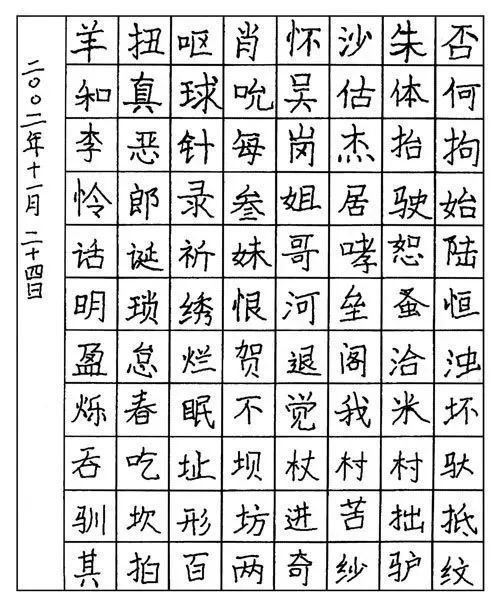 否何拘始陆恒浊坏驮抵纹
朱体抬驶恕蚤洽米村拙驴
沙估杰居哮垒阁我村苦纱
怀吴岗姐哥河退觉杖进奇
肖吮每叁妹恨贺不坝坊两
呕球针录祈绣烂眠址形百
扭真恶郎诞琐怠春吃坎拍
羊和李怜话明盈烁吞驯其
二〇〇二年十一月二十四日